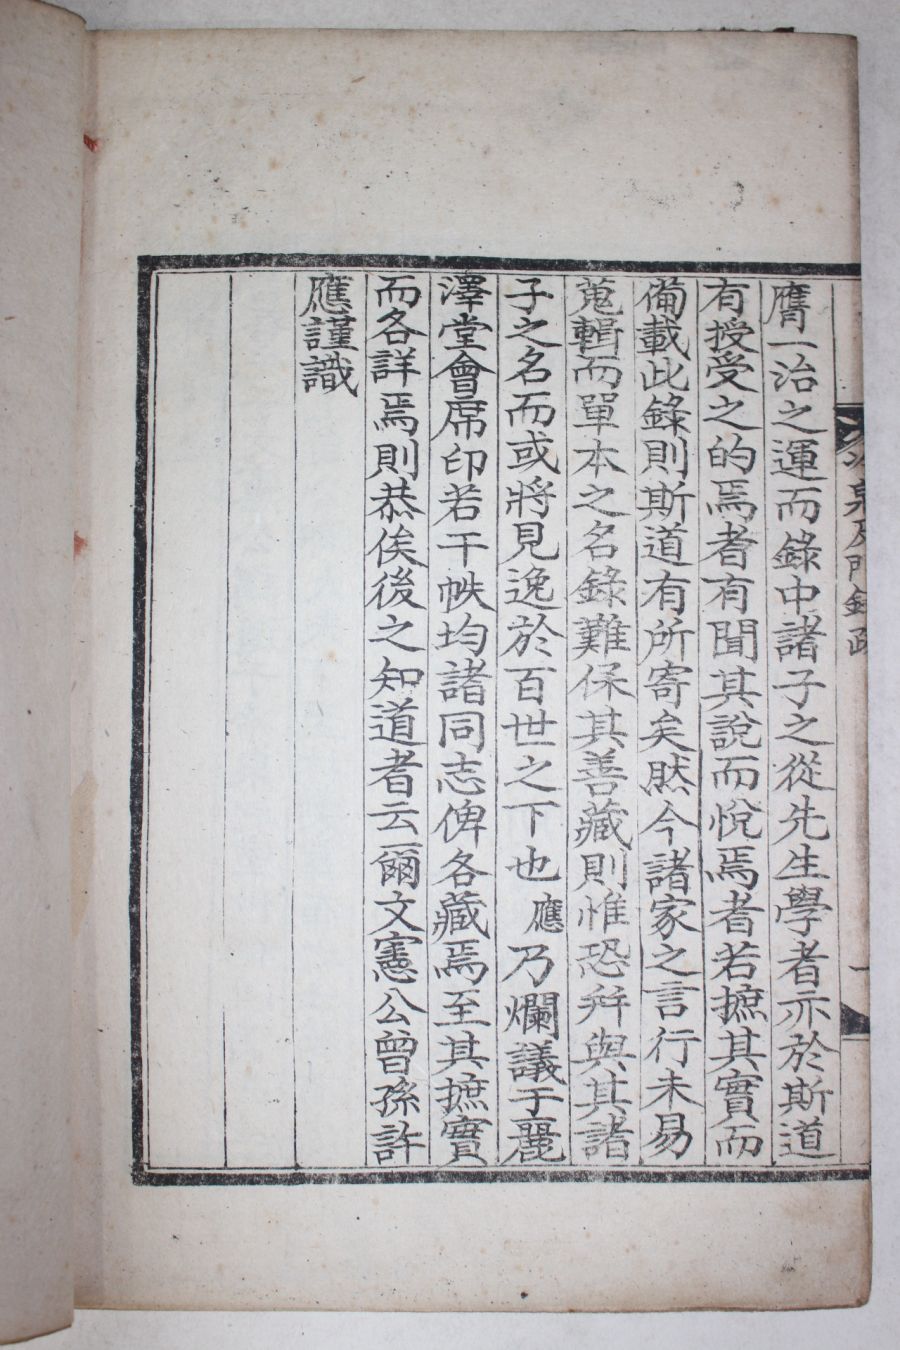 泉及門錄
一
膺一治之運而錄中諸子之從先生學者亦於斯道
有授受之的焉者有聞其說而悅焉者若摭其實而
備載此錄則斯道有所寄矣然今諸家之言行未易
蒐輯而單本之名錄難保其善藏則惟恐并與其諸
子之名而或將見逸於百世之下也應乃爛議于麗
澤堂會席印若干帙均諸同志俾各藏焉至其摭實
而各詳焉則恭俟後之知道者云爾文憲公曾孫許
應謹識